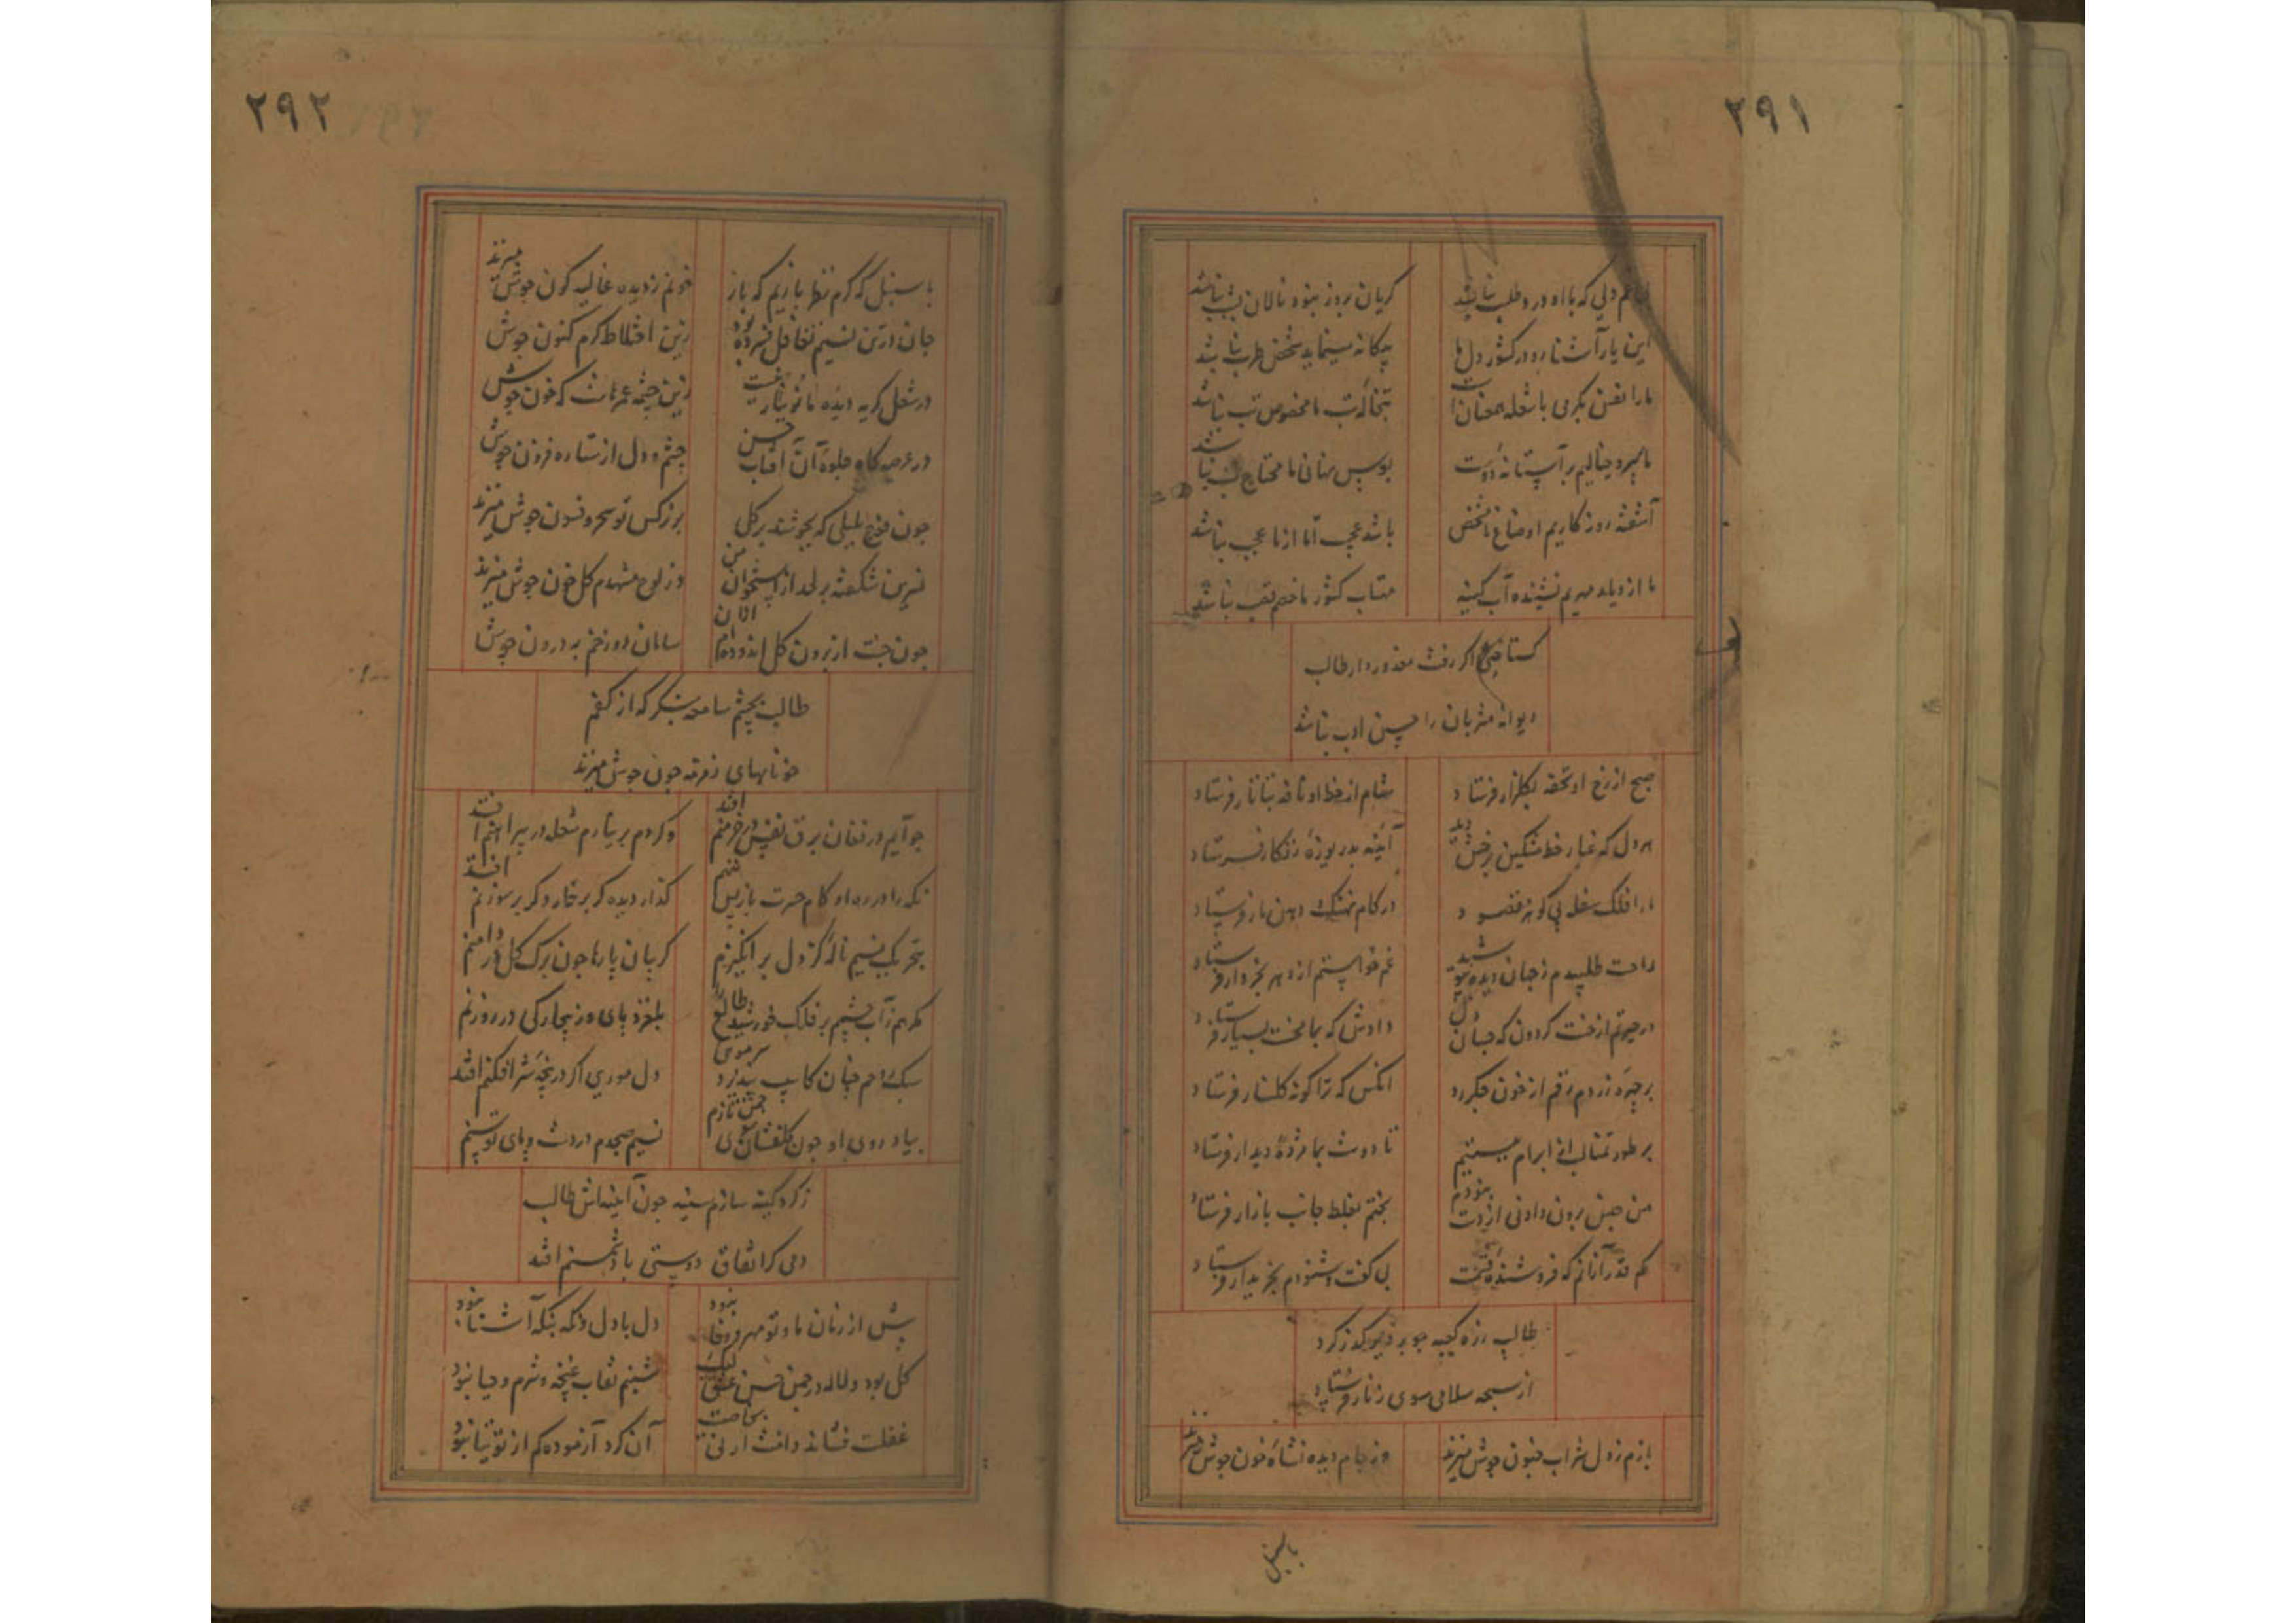 ۲۹۱
دلی که با اه درد طلب نباشد
کریان بروز نبود نالان بشب نباشد
این یار آشنا رو در کشور دل ما
بیکانه مینماید شخص طرب نباشد
ما را نفس بکرمی با شعله همعنان است
تبخاله لب ما مخصوص تب نباشد
بر آستانه دوست
بوس نهانی ما محتاج لب نباشد
آشفته روزکاریم اوضاع ما مشخص
باشد عجب اما از ما عجب نباشد
ما از دیار مهریم
مهتاب کشور ما خصم قصب نباشد
کستاخیی اکر رفت معذور دار طالب
دیوانه مشربان را چندین ادب نباشد
صبح از رخ او تحفه بکلزار فرستاد
شام از خط او نافه بتاتار فرستاد
هر دل که غبار خط مشکین برخش دید
آئینه بدریوزه زنکار فرستاد
ما را فلک سفله پی کوهر مقصود
در کام نهنک و دهن مار فرستاد
راحت طلبیدم ز جهان دیده بپوشید
غم خواستم از دهر بخروار فرستاد
در حیرتم از خست کردون که جهان دل
دادش که بما محنت بسیار فرستاد
بر چهره زردم رقم از خون جکر زد
انکس که ترا کونه کلنار فرستاد
بر طور تمنا لب از ابرام نبستیم
تا دوست بما مژده دیدار فرستاد
من جنس برون دادنی از دست نبودم
بختم بغلط جانب بازار فرستاد
کم قدر از آنم که فروشنده قسمت
بی کفت و شنودم بخریدار فرستاد
طالب ز ره کعبه چو بر دیر کذر کرد
از سبحه سلامی سوی زنار فرستاد
بازم ز دل شراب جنون جوش میزند
وز جام دیده نشاه خون جوش میزند
با سنبل
۲۹۲
با سنبل که کرم تنها بازیم که باز
خونم ز دیده غالیه کون جوش میزند
جان در تن نسیم تغافل فسرده بود
زین اختلاط کرم کنون جوش
در شغل کریه دیده ما نو نیاز نیست
زین چشمه عمرهاست که خون جوش
در عرصه کاه جلوه آن آفتاب حسن
چشم و دل از ستاره فزون جوش
چون فوج بلبلی که بجوشند بر کلی
بر نرکس تو سحر و فسون جوش میزند
نسرین شکفته بر لحد از استخوان من
وز لوح مشهدم کل خون جوش میزند
چون جنت از برون کل اندوده ام
سامان دوزخم به درون جوش
طالب بچشم سامعه بنکر که از کفم
خونابهای زمزمه چون جوش میزند
چو آیم در فغان برق نفس در خرمنم افتد
وکر دم بر نیارم شعله در پیراهنم افتد
نکه را در ره او کام حسرت بازپس
کذار دیده کر بر خار و کر بر سوزنم افتد
بتحریک نسیم ناله کز دل بر انکیزم
کریبان پارها چون برک کل در دامنم
کر هم ز آب چشم بر فلک خورشید طالع را
بلغزد پای وز بیچارکی در روزنم
سر موئی
دل موری اکر در پنجه شیر افکنم افتد
بیاد روی او چون کلفشان سوی چمن تازم
نسیم صبحدم در دست و پای توسنم
ز کرد کینه سازم سینه چون آئینه اش طالب
دمی کر اتفاق دوستی با دشمنم افتد
پیش از زمان ما و تو مهر و وفا نبود
دل با دل و نکه بنکه آشنا نبود
کل بود و لاله در چمن حسن و عشق لیک
شبنم نقاب غنچه و شرم و حیا نبود
غفلت نشاند
آن کرد آزموده کم از توتیا نبود